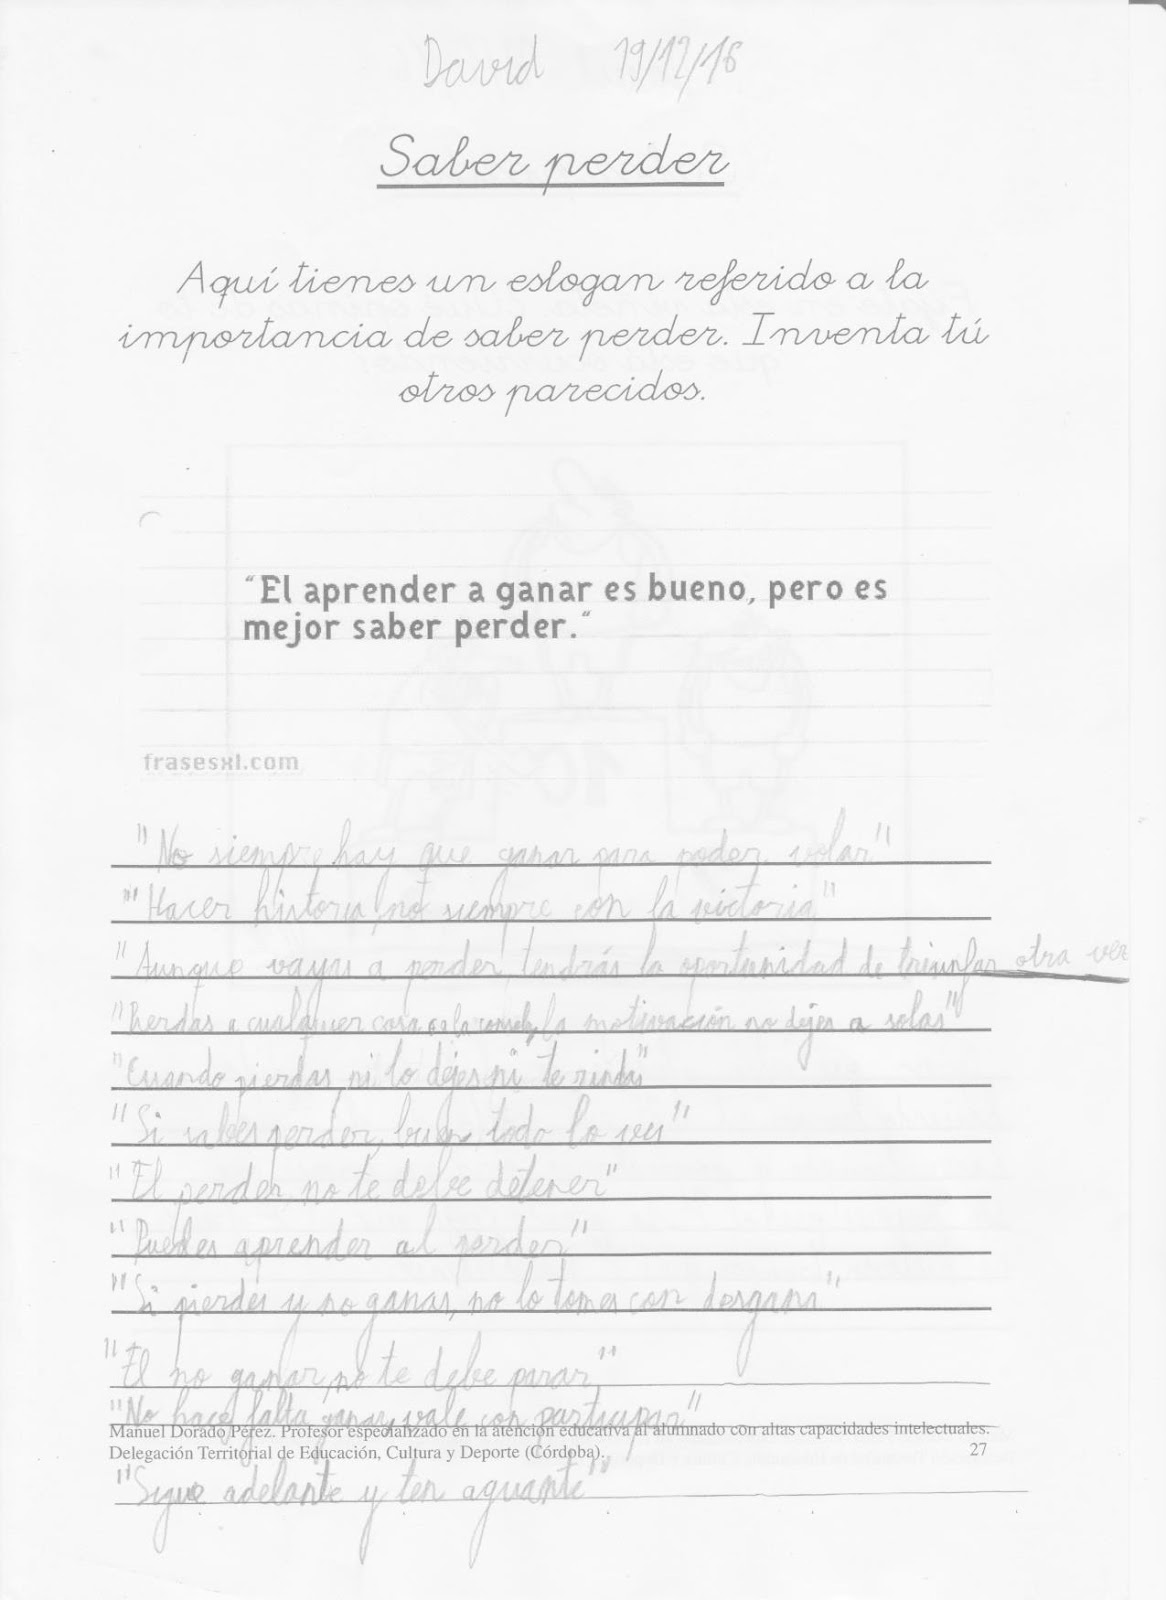 David 19/12/16
Saber perder
Aquí tienes un eslogan referido a la
importancia de saber perder. Inventa tú
otros parecidos.
“El aprender a ganar es bueno, pero es
mejor saber perder.“
frasesxl.com
"No siempre hay que ganar para poder volar"
"Hacer historia, no siempre con la victoria"
"Aunque vayas a perder tendrás la oportunidad de triunfar otra vez
"Pierdas a cualquier cosa o la consola, la motivación no dejes a solas"
"Cuando pierdas, ni lo dejes ni te rindas"
"Si sabes perder, bien todo lo ves"
"El perder no te debe detener"
"Puedes aprender al perder"
"Si pierdes y no ganas, no lo tomes con desgana"
"El no ganar, no te debe parar"
"No hace falta ganar, vale con participar"
Manuel Dorado Pérez. Profesor especializado en la atención educativa al alumnado con altas capacidades intelectuales.
Delegación Territorial de Educación, Cultura y Deporte (Córdoba). 27
"Sigue adelante y ten aguante"